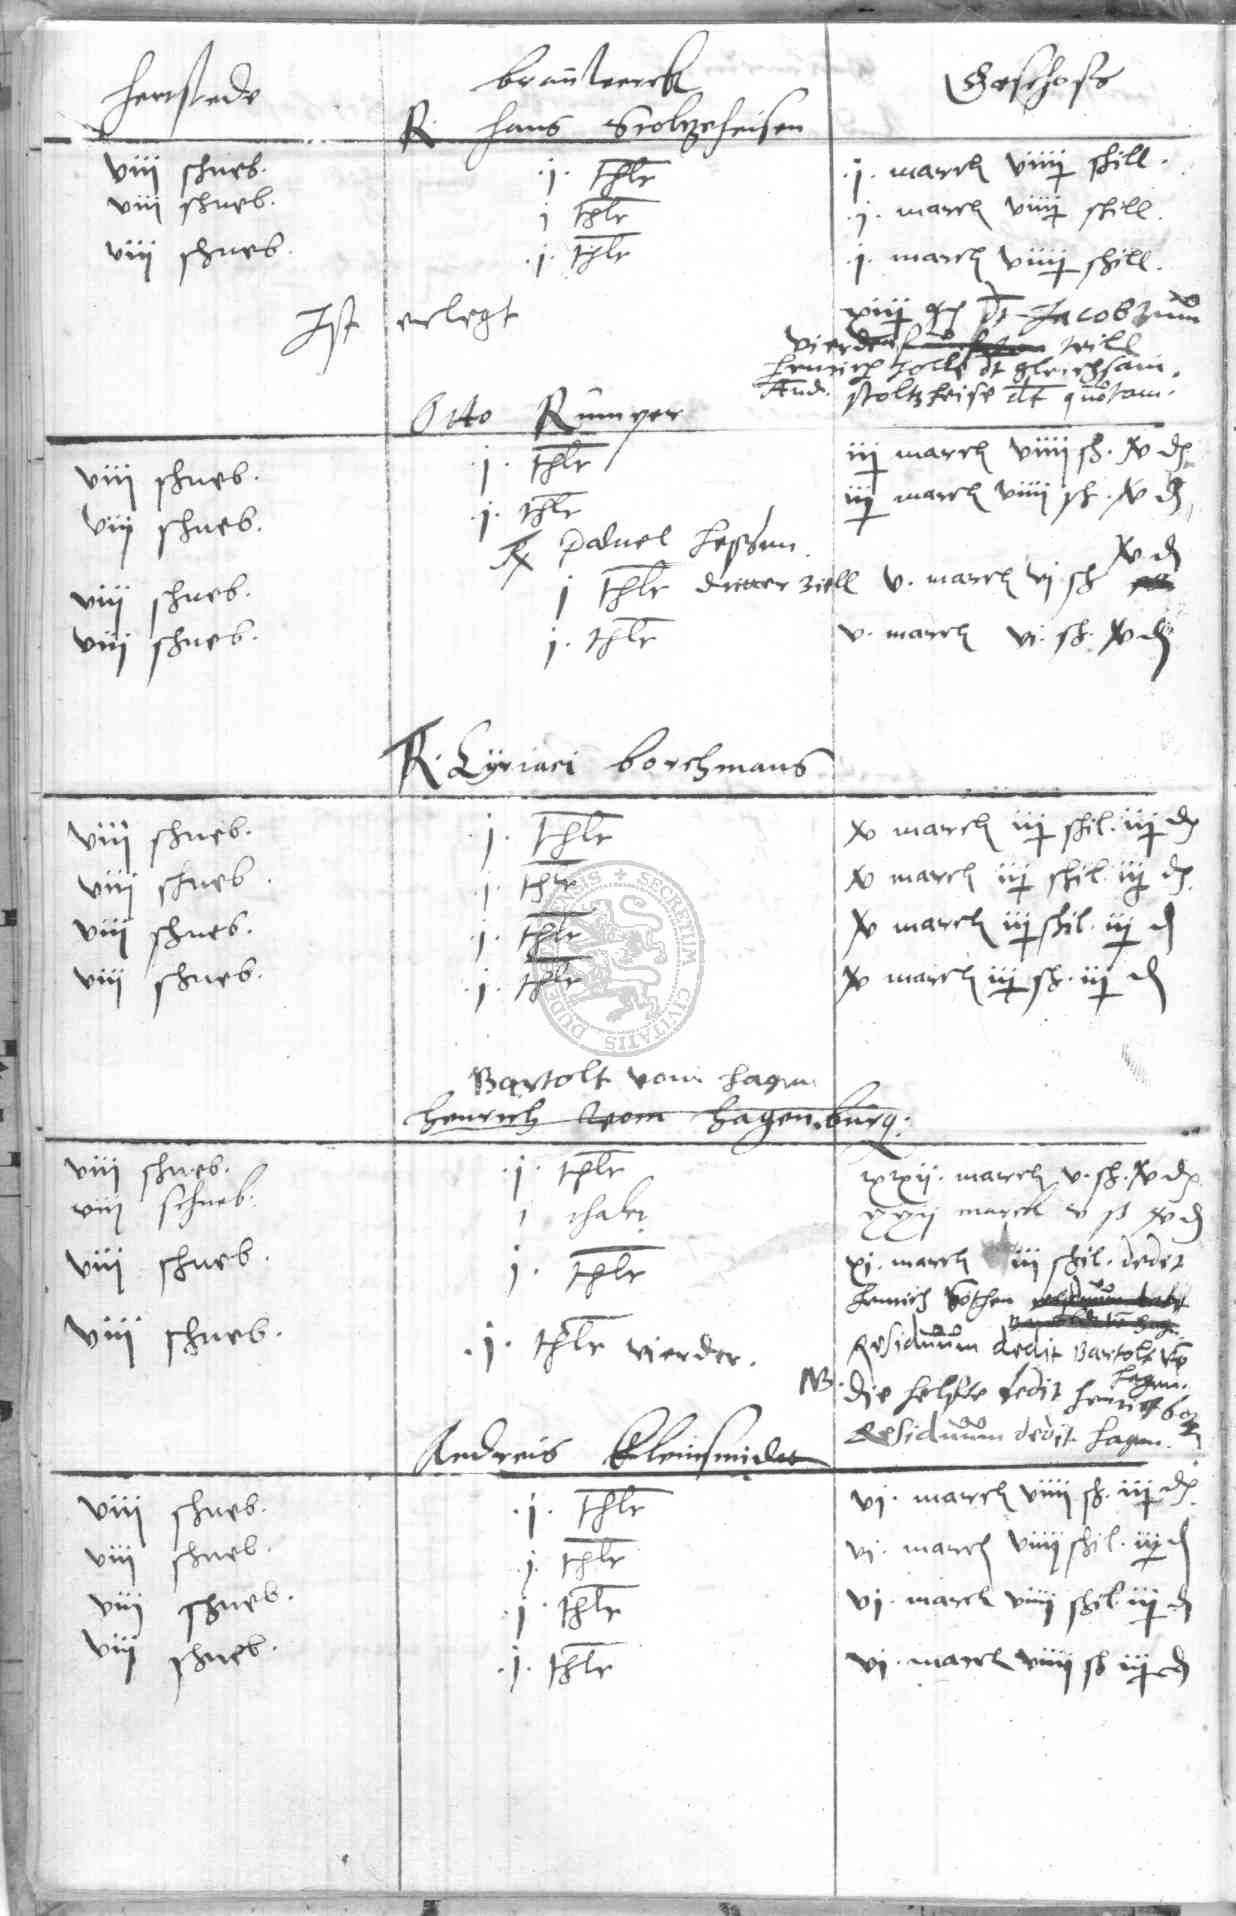 hertstede braüwerck Geschoss
R. hans Stoltzeheisen
viii schneb. .j. thlr .j. march viiij schill.
viii schneb. j thlr .j. march viiij schill.
viij schneb. .j. thlr .j. march viiij schill.
Ist erlegt xiiij dt Jacob zum
vierden teill
henrich Tolle dt gleichsam.
And. stoltzheise dt quotam.
Otto Rümper
viij schneb. .j. thlr iij march viiij sh. xv d
vij schneb. .j. thlr iij march viiij sh. xv d
R Paduel
viij schneb. j thlr dritter ziell v. march vj sh xv d
viij schneb. j. thlr v. march vi. sh. xv d
R. Cyriaci borchmans
viij schneb. .j. thlr xv march iij shil. iij d
viij schneb. .j. thlr xv march iij shil. iij d
viij schneb. .j. thlr xv march iij shil. iij d
viij schneb. .j. thlr xv march iij sh. iij d
Bartolt vom hagen
henrich vom hagen bürg.
viij schneb. .j. thlr xxij. march v. sh. xv d
viij schneb. 1 thaler xxij march v ß xv d
viij schneb. j. thlr xi. march iij shil. dedit
henrich
viij schneb. .j. thlr vierder. Residuum dedit Bartolt vom
hagen.
NB. die helfte dedit henrich
Residuum dedit hagen.
Andreis Kleinsmidt
viij schneb. .j. thlr vj. march viiij sh. iij d
viij schneb. .j. thlr vi. march viiij shil. iij d
viij schneb. .j. thlr vj. march viiij shil. iij d
viij schneb. .j. thlr vi. march viiij sh iij d
SECRETUM CIVITATIS